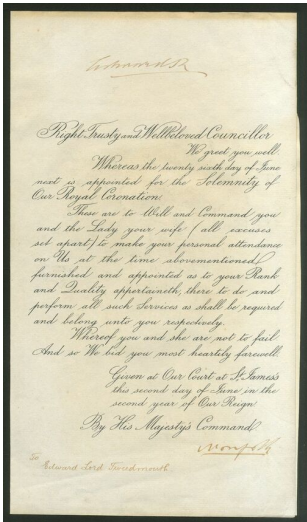 Edward R
Right Trusty and Wellbeloved Councillor
We greet you well.
Whereas the twenty sixth day of June
next is appointed for the Solemnity of
Our Royal Coronation
These are to Will and Command you
and the Lady your wife (all excuses
set apart) to make your personal attendance
on Us at the time abovementioned
furnished and appointed as to your Rank
and Quality appertaineth, there to do and
perform all such Services as shall be required
and belong unto you respectively.
Whereof you and she are not to fail
And so We bid you most heartily farewell.
Given at Our Court at St James's
this second day of June in the
second year of Our Reign
By His Majesty's Command
Norfolk
To
Edward Lord Tweedmouth